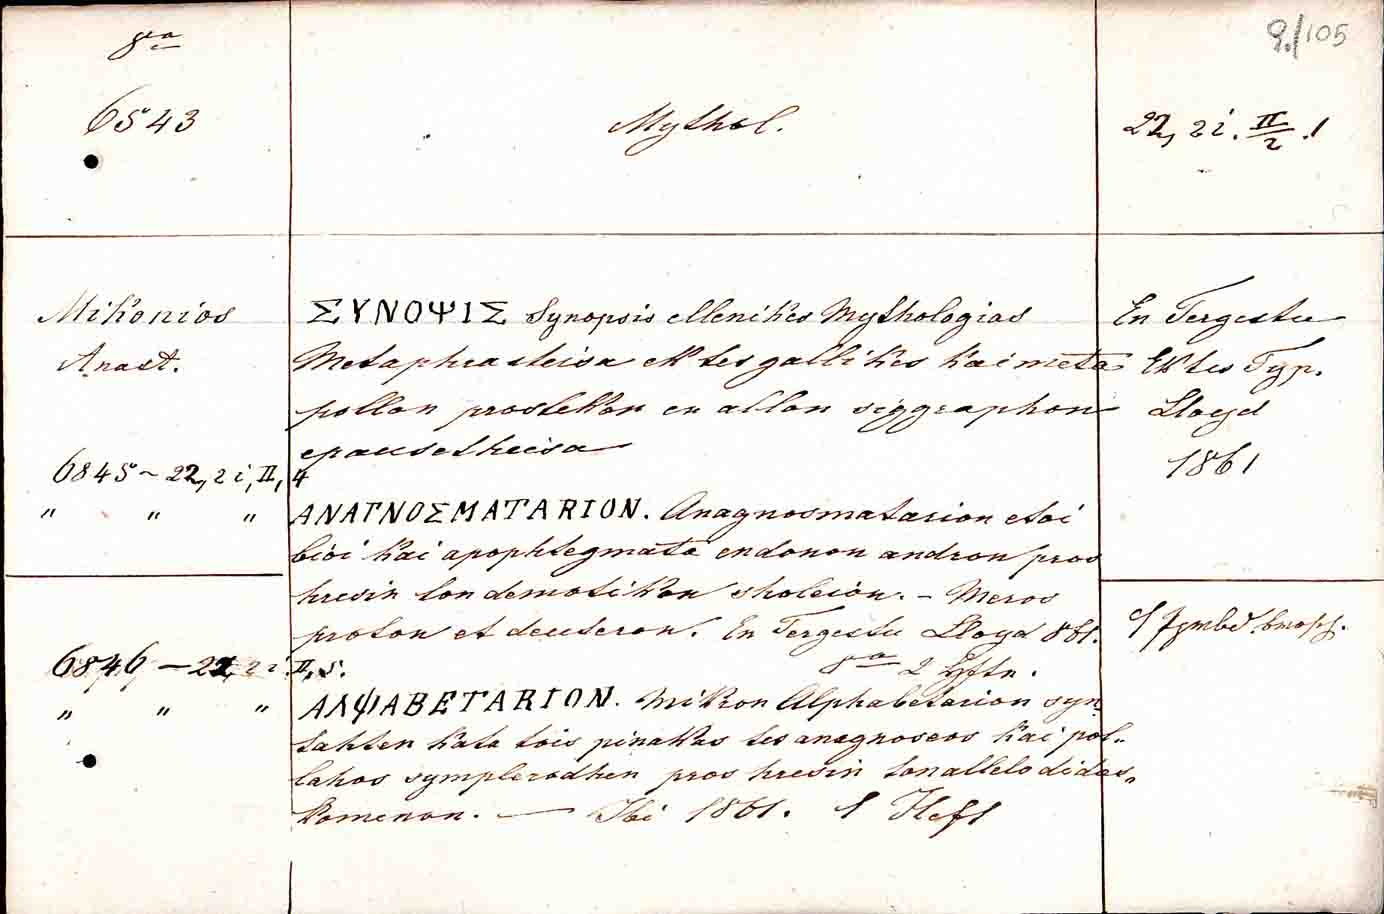 8va
9./105
6543
Mythol.
22, 2 i. II/2 .1
Mikonios
Anast.
ΣΥΝΟΨΙΣ Synopsis ellenikes Mythologias
Metaphrasteisa ek tes gallikes kai meta
pollon prostekon en allon siggraphon
epauseteisa
En Tergestu
Ek tes Typ.
Lloyd
1861
6845 ~ 22, 2 i, II, 4
" " "
ΑΝΑΓΝΟΣΜΑΤΑRΙΟΝ. Anagnosmatarion etoi
bioi kai apophtegmata endonon andron pros
hresin ton demotikon skoleion. - Meros
proton et deuteron. En Tergestu Lloyd 861.
8va 2 Hftn.
6846 - 22, 2 i. II, 5.
" " "
ΑΛΨΑΒΕΤΑRΙΟΝ. Mikron Alphabetarion syn-
tahten kata tois pinakas tes anagnoseos kai pol-
lahos symplerodhen pros hresin ton allelo didas-
komenon. — Ibi 1861. 1 Heft
1